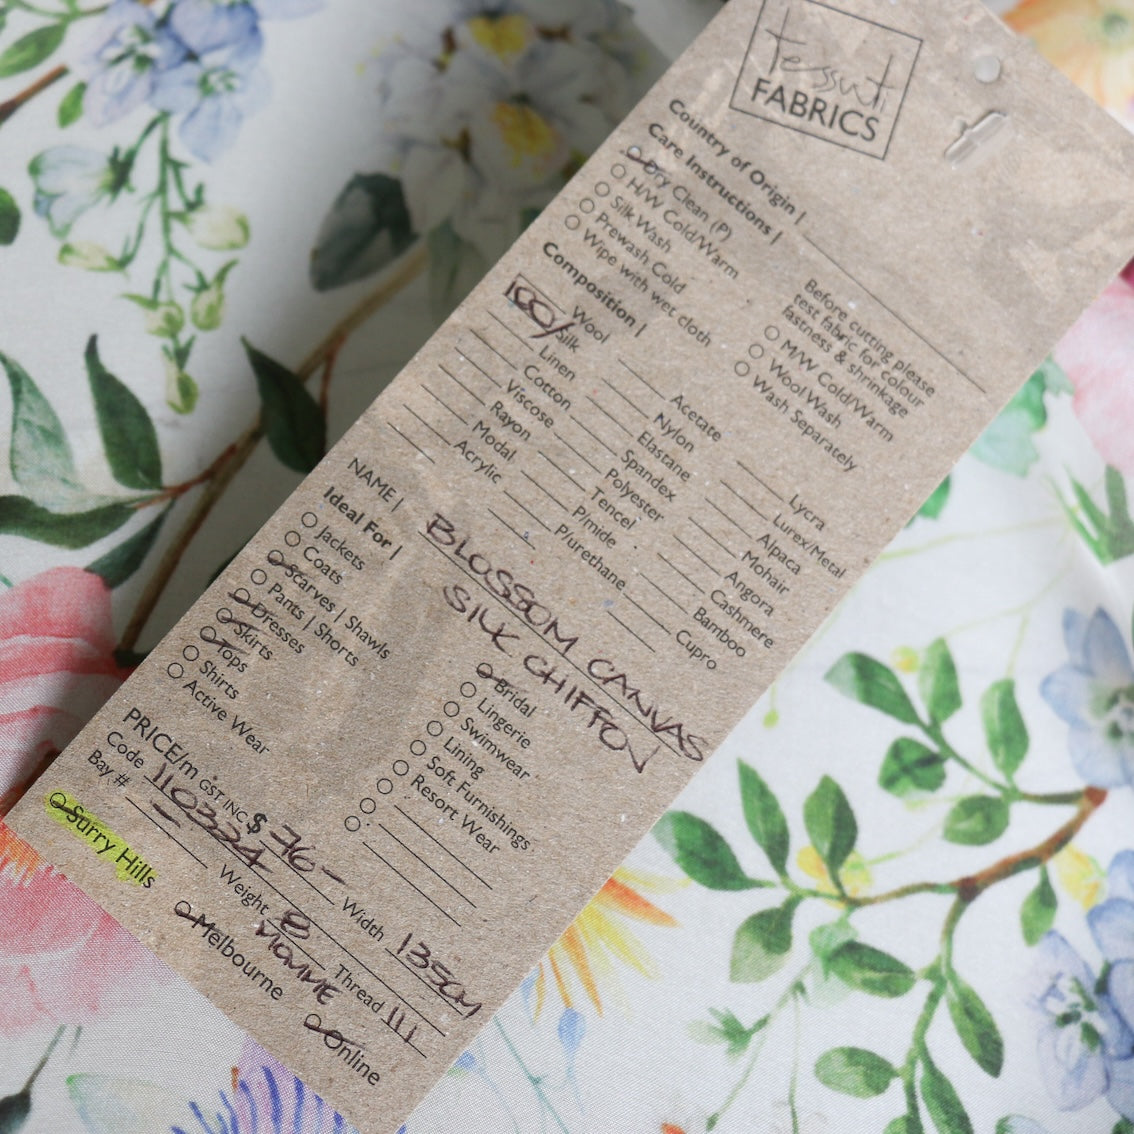 tessuti
FABRICS
Country of Origin |
Care Instructions |
Dry Clean (P)
H/W Cold/Warm
Silk Wash
Prewash Cold
Wipe with wet cloth
Before cutting please
test fabric for colour
fastness & shrinkage
M/W Cold/Warm
Wool Wash
Wash Separately
Composition |
Wool
100/ Silk
Linen
Cotton
Viscose
Rayon
Modal
Acrylic
Acetate
Nylon
Elastane
Spandex
Polyester
Tencel
P/mide
P/urethane
Lycra
Lurex/Metal
Alpaca
Mohair
Angora
Cashmere
Bamboo
Cupro
NAME | BLOSSOM CANVAS
SILK CHIFFON
Ideal For |
Jackets
Coats
Scarves | Shawls
Pants | Shorts
Dresses
Skirts
Tops
Shirts
Active Wear
Bridal
Lingerie
Swimwear
Lining
Soft Furnishings
Resort Wear
PRICE/m GST INC $ 76 -
Width 135CM
Code 110324
Weight 8 MOMME
Thread
Bay #
Surry Hills
Melbourne
Online